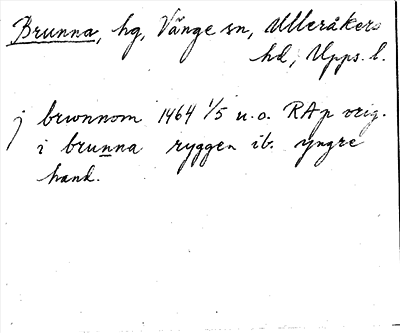 Brunna, hg, Vänge sn, Ulleråkers
hd, Upps. l.
j brwnnom 1464 1/5 u.o. RAp orig.
i brunna ryggen ib. yngre
hand.